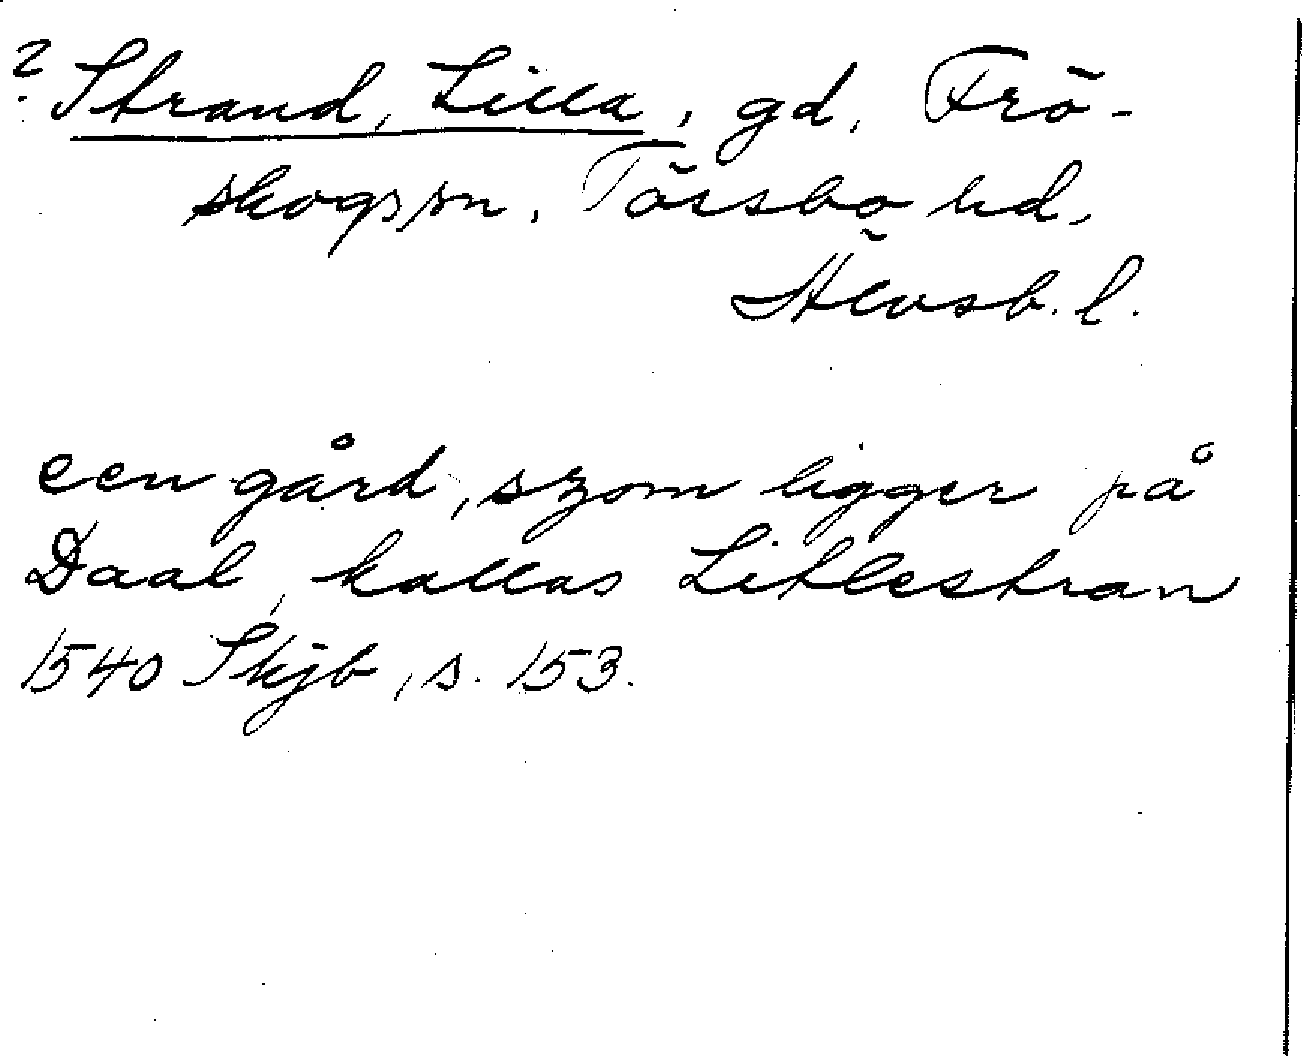 ? Strand, Lilla, gd, Frö-
skogs sn, Tössbo hd,
Älvsb. l.
een gård, szom ligger på
Daal, kallas Litlestran
1540 Skjb, s. 153.